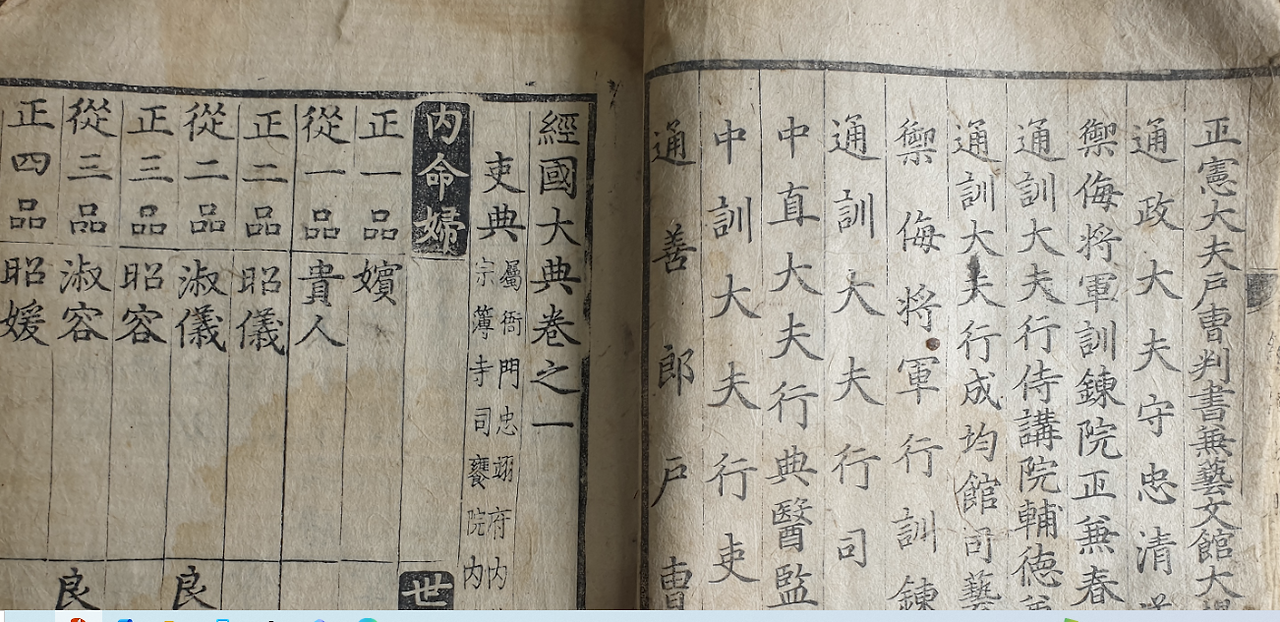 正憲大夫戶曹判書兼藝文館大提
通政大夫守忠清道
禦侮將軍訓鍊院正兼春
通訓大夫行侍講院輔德兼
通訓大夫行成均館司藝
禦侮將軍行訓鍊
通訓大夫行司
中直大夫行典醫監
中訓大夫行吏
通善郎戶曹
經國大典卷之一
吏典
屬衙門忠翊府內
宗簿寺司饔院內
內命婦
世
正一品 嬪
從一品 貴人
正二品 昭儀
從二品 淑儀 良
正三品 昭容
從三品 淑容 良
正四品 昭媛